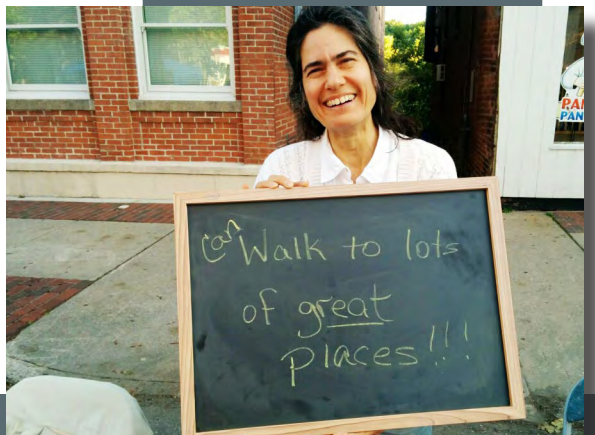 Can Walk to lots
of great
places!!!